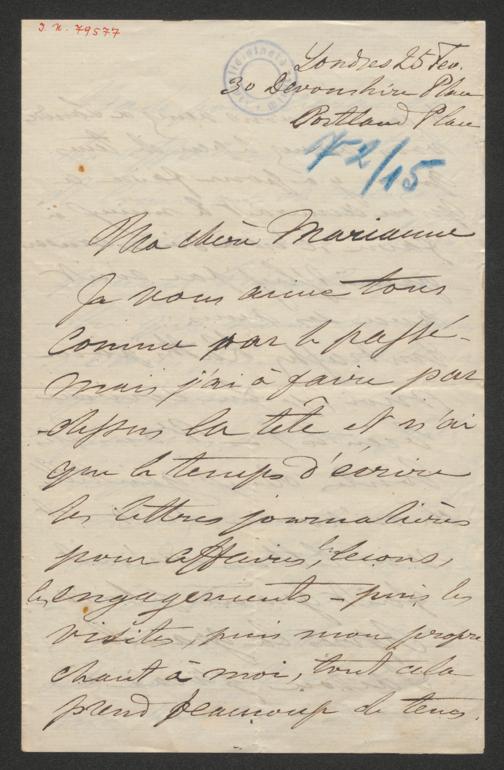 J. N. 79577
Londres 25 Fev.
30 Devonshire Place
Portland Place
72/15
Ma chère Marianne
Je vous aime tous
comme par le passé -
mais j'ai à faire par
-dessus la tête et n'ai
que le temps d'écrire
les lettres journalières
pour affaires, les leçons,
les engagements - puis les
visites, puis mon propre
chant à moi, tout cela
prend beaucoup de tems.